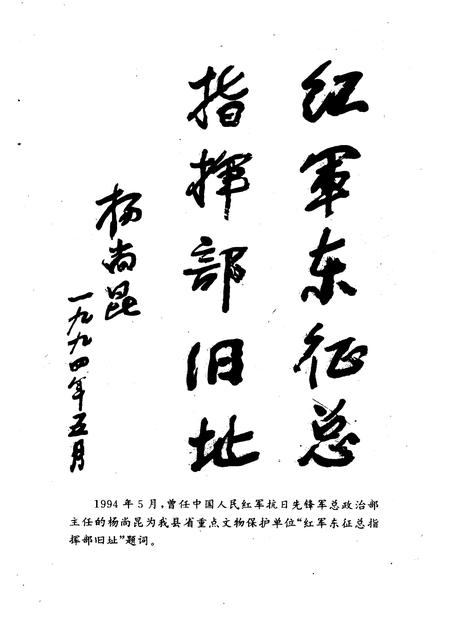 红軍东征总
指揮部旧址
杨尚昆
一九九四年五月
1994年5月,曾任中国人民红军抗日先锋军总政治部
主任的杨尚昆为我县省重点文物保护单位“红军东征总指
挥部旧址”题词。